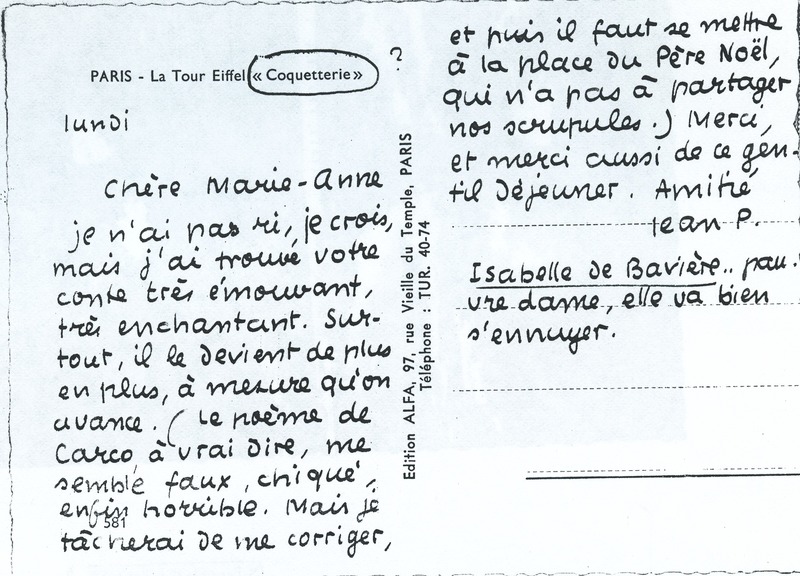 PARIS - La Tour Eiffel « Coquetterie » ?
lundi
Chère Marie-Anne
je n'ai pas ri, je crois,
mais j'ai trouvé votre
conte très émouvant,
très enchantant. Sur-
tout, il le devient de plus
en plus, à mesure qu'on
avance. ( Le poème de
Carco à vrai dire, me
semble faux, chiqué,
enfin horrible. Mais je
tâcherai de me corriger,
581
Edition ALFA, 97, rue Vieille du Temple, PARIS
Téléphone : TUR. 40-74
et puis il faut se mettre
à la place du Père Noël,
qui n'a pas à partager
nos scrupules.) Merci,
et merci aussi de ce gen-
til déjeuner. Amitié,
Jean P.
Isabelle de Bavière.. pau-
vre dame, elle va bien
s'ennuyer.